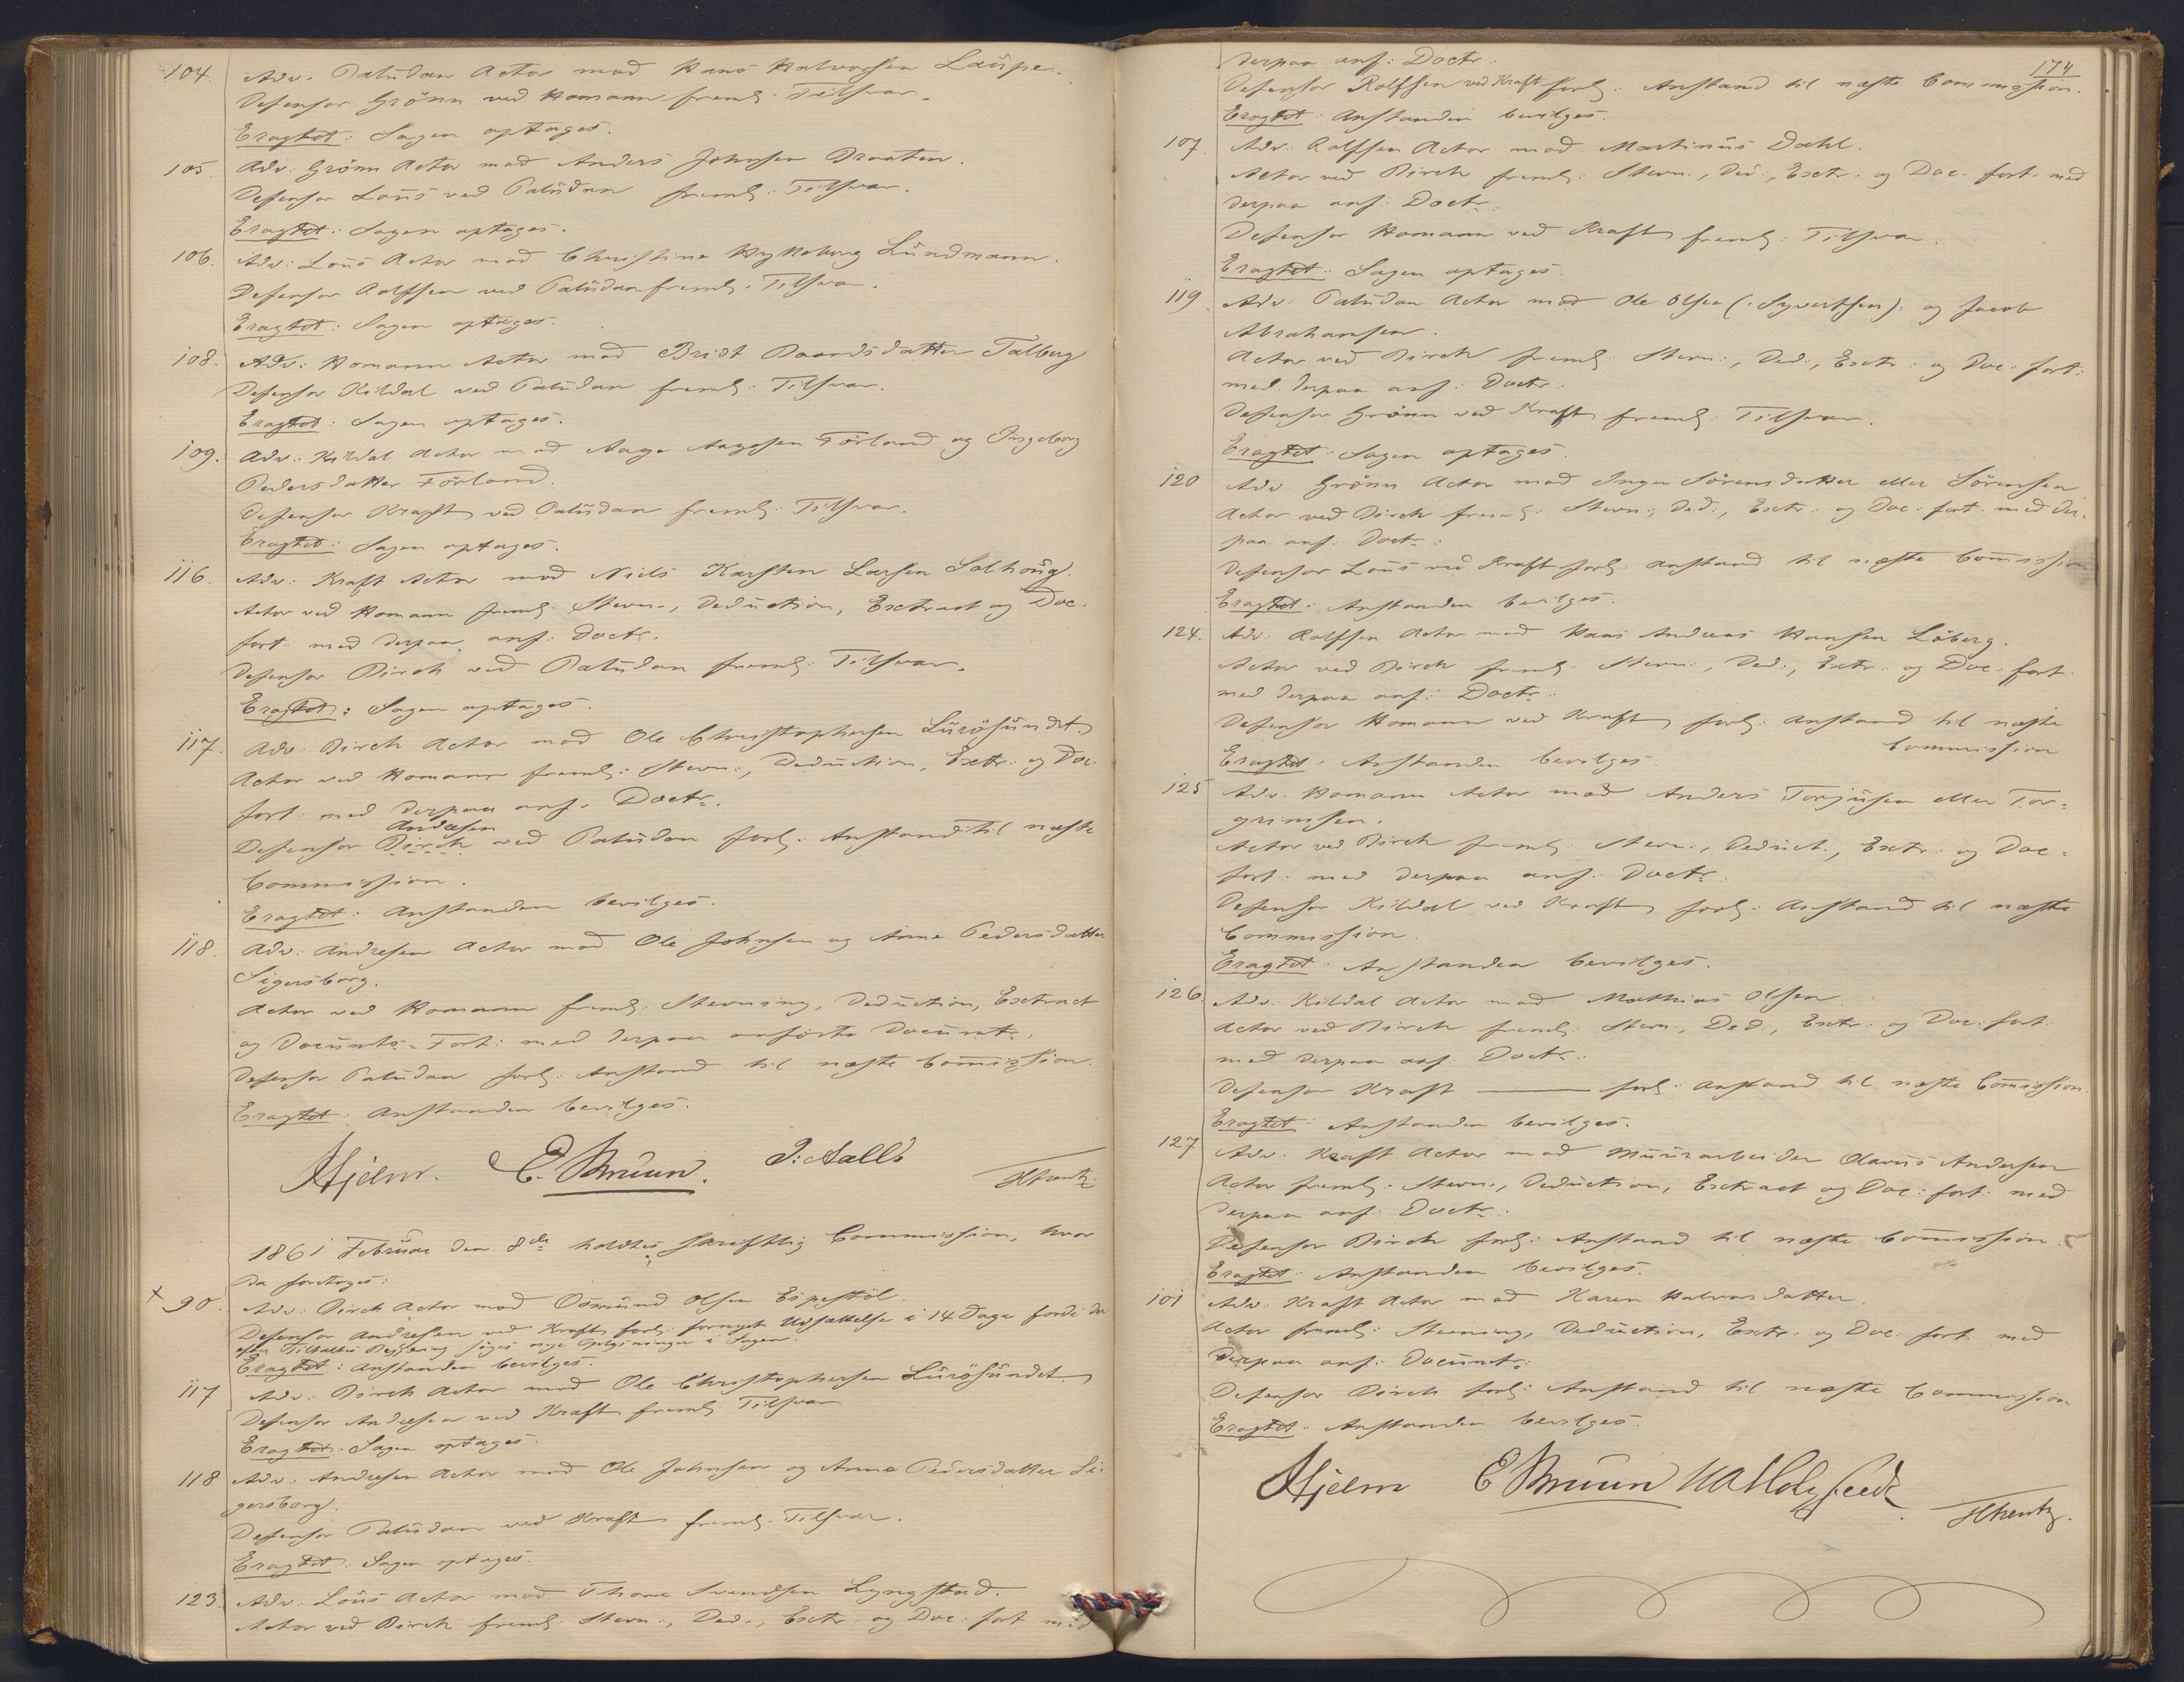 104. Adv. Paludan Actor mod Hans Halvorsen Laupe.
Defensor Grönn ved Homann freml: Tilsvar.
Eragtet: Sagen optages.
105. Adv: Grönn Actor mod Anders Johnsen Braaten.
Defensor Lous ved Paludan freml: Tilsvar.
Eragtet: Sagen optages.
106. Adv: Lous Actor mod Christine Lundmann.
Defensor Rolfsen ved Paludan freml: Tilsvar.
Eragtet: Sagen optages.
108. Adv: Homann Actor mod Bridt Baardsdatter Talberg
Defensor Kildal ved Paludan freml: Tilsvar.
Eragtet: Sagen optages.
109. Adv: Kildal Actor mod Aage Aagesen Förland og Ingeborg
Pedersdatter Förland.
Defensor Kraft ved Paludan freml: Tilsvar.
Eragtet: Sagen optages.
116. Adv: Kraft Actor mod Niels Karsten Larsen Solhoug.
Actor ved Homann freml: Stevn., Deduction, Extract og Doc:
fort. med derpaa anf: Doctr.
Defensor Birch ved Paludan freml: Tilsvar.
Eragtet: Sagen optages.
117. Adv: Birch Actor mod Ole Christophersen Luröesundet
Actor ved Homann freml: Stevn:, Deduction, Extr: og Doc
fort. med derpaa anf: Doctr.
Andresen
Defensor Birch ved Paludan forl: Anstand til næste
Commission.
Eragtet: Anstanden bevilges.
118. Adv: Andresen Actor mod Ole Johnsen og Anne Pedersdatter
Sigersborg.
Actor ved Homann freml: Stevning, Deduction, Extract
og Docunts-Fort: med derpaa anförte Documtr.
Defensor Paludan forl: Anstand til næste Comission.
Eragtet: Anstanden bevilges.
Hjelm. E. Bruun. J: Aall
1861 Februar den 8de holdtes skriftlig Commission, hvor
da foretoges:
x 90. Adv: Birch Actor mod Osmund Olsen Espestöl.
Defensor Andresen ved Kraft forl: fornyet Udsættelse i 14 Dage fordi der
efter Tiltaltes Begjæring söges nye Oplysninger i Sagen.
Eragtet: Anstanden bevilges.
117 Adv: Birch Actor mod Ole Christophersen Luröesundet
Defensor Andresen ved Kraft freml: Tilsvar
Eragtet: Sagen optages.
118 Adv. Andresen Actor mod Ole Johnsen og Anne Pedersdatter Si-
gersborg.
Defensor Paludan ved Kraft freml: Tilsvar.
Eragtet: Sagen optages.
123. Adv. Lous Actor mod Thore Svendsen Lyngstad.
Actor ved Birch freml: Stevn:, Ded:, Extr: og Doc: fort med
174
derpaa anf: Doctr.
Defensor Rolfsen ved Kraft forl: Anstand til næste Commission.
Eragtet: Anstanden bevilges.
107. Adv: Rolfsen Actor mod Martinus Dahl.
Actor ved Birch freml: Stevn:, Ded:, Extr: og Doc: fort: med
derpaa anf: Doctr:
Defensor Homann ved Kraft freml: Tilsvar.
Eragtet: Sagen optages.
119 Adv: Paludan Actor mod Ole Olsen (:Syvertsen): og Jacob
Abrahamsen.
Actor ved Birch freml: Stevn:, Ded:, Extr: og Doc: fort:
med derpaa anf: Doctr:
Defensor Grönn ved Kraft freml: Tilsvar.
Eragtet: Sagen optages.
120 Adv. Grönn Actor mod Inger Sörensdatter eller Sörensen
Actor ved Birch freml: Stevn:, Ded:, Extr: og Doc: fort: med der-
paa anf: Doctr:
Defensor Lous ved Kraft forl: Anstand til næste Comission
Eragtet: Anstanden bevilges.
124. Adv: Rolfsen Actor mod Hans Andreas Hansen Löberg.
Actor ved Birch freml: Stevn:, Ded:, Extr: og Doc: fort.
med derpaa anf: Doctr:
Defensor Homann ved Kraft forl: Anstand til næste
Commission
Eragtet: Anstanden bevilges.
125 Adv. Homann Actor mod Anders Torjusen eller Tor-
grimsen.
Actor ved Birch freml: Stevn:, Deduct., Extr: og Doc:
fort. med derpaa anf: Doctr:
Defensor Kildal ved Kraft forl: Anstand til næste
Commission.
Eragtet: Anstanden bevilges.
126. Adv: Kildal Actor mod Mathias Olsen
Actor ved Birch freml: Stevn:, Ded:, Extr: og Doc: fort.
med derpaa anf: Doctr:
Defensor Kraft — forl: Anstand til næste Comission.
Eragtet: Anstanden bevilges.
127 Adv: Kraft Actor mod Muurarbeider Olaus Andersen
Actor freml: Stevn:, Deduction, Extract og Doc: fort: med
derpaa anf: Doctr:
Defensor Birch forl: Anstand til næste Comission.
Eragtet: Anstanden bevilges.
101 Adv. Kraft Actor mod Karen Halvorsdatter.
Actor freml: Stevning, Deduction, Extr: og Doc: fort: med
derpaa anf: Documtr:
Defensor Birch forl: Anstand til næste Commission
Eragtet: Anstanden bevilges.
Hjelm E Bruun